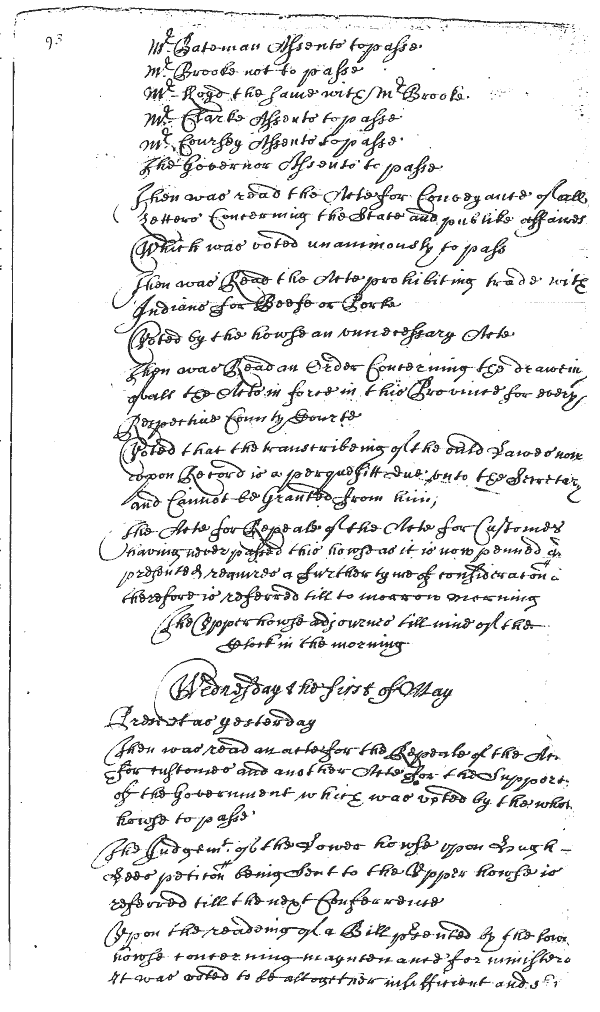 93
Mr Bateman Assents to passe
Mr Brooke not to passe
Mr Lloyd the same with Mr Brooke.
Mr Clarke Assents to passe
Mr Coursey Assents to passe
The Governor Assents to passe
Then was read the Acte for Conveyance of all
Letters Concerning the State and publike affaires
Which was voted unanimously to pass
Then was Read the Acte prohibiting trade with
Indians for Beefe or Porke
Voted by the howse an unnecessary Acte
Then was Read an Order Concerning the drawein
of all the Acts in force in this Province for every
Respective County Courte
Voted that the transcribeing of the ould Lawes now
upon Record is a perquesitt due unto the Secretary
and Cannot be Granted from him;
The Acte for Repeale of the Acte for Customes
having never passed this howse as it is now penned &
presented requires a further tyme of consideraton &
therefore is referred till to morrow morning
The Upper howse adjournes till nine of the
Clock in the morning
Wednesday the first of May
Present as yesterday
Then was read an acte for the Repeale of the Acte
for customes and another Acte for the Support
of the Government which was voted by the whole
howse to passe
The Judgemt. of the Lower howse upon Hugh
Lees petiton being Sent to the Upper howse is
referred till the next Conferrence
Upon the readeing of a Bill psented by the lower
howse concerning mayntenance for ministers
It was voted to be altogether insifficient and